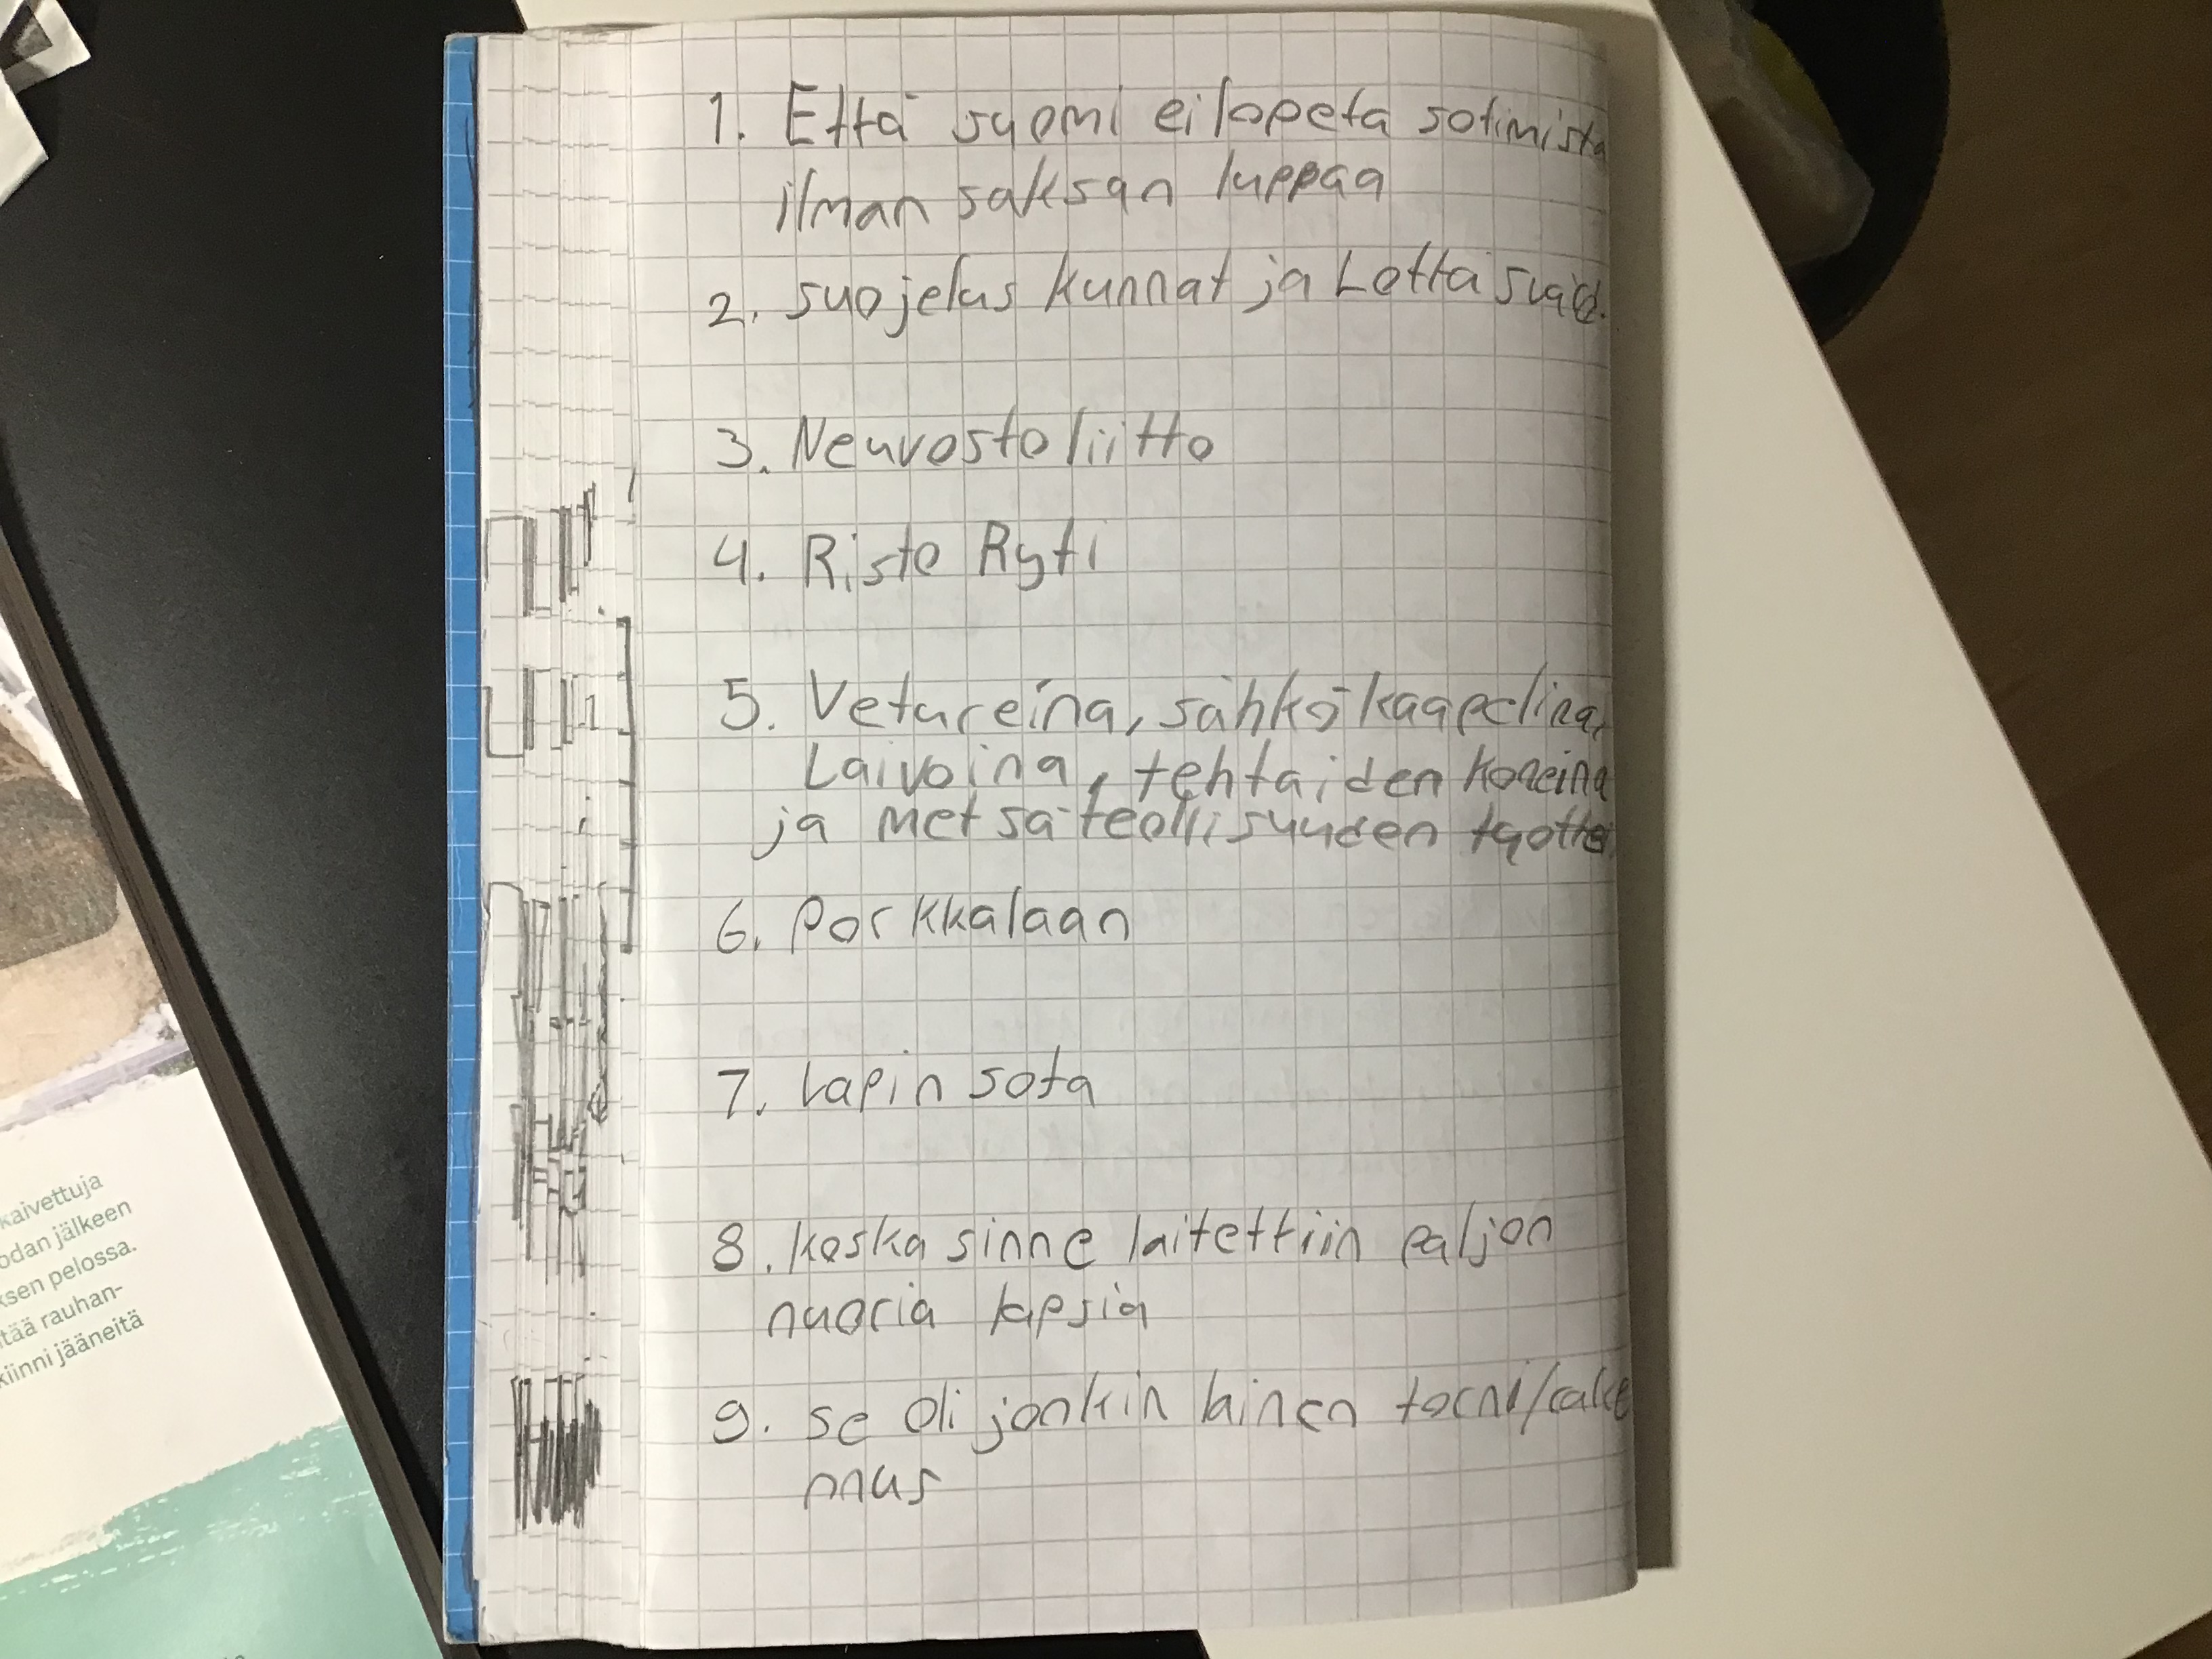 1. Että suomi ei lopeta sotimista
ilman saksan luppaa
2. suojelus kunnat ja Lotta svärd.
3. Neuvostoliitto
4. Risto Ryti
5. Vetureina, sähkö kaapelina,
Laivoina, tehtaiden koneina
ja metsäteollisuuden tuotte
6. Porkkalaan
7. Lapin sota
8. koska sinne laitettiin paljon
nuoria lapsia
9. se oli jonkin lainen torni/rake
nnus
kaivettuja
odan jälkeen
ksen pelossa.
tää rauhan-
kiinni jääneitä